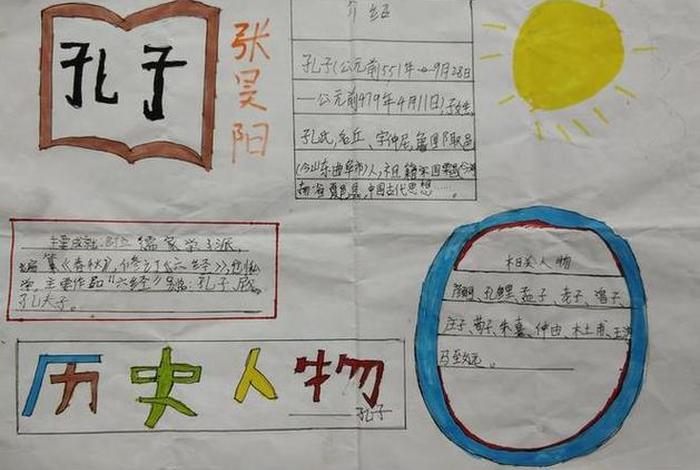 孔子
张昊阳
介绍
孔子(公元前551年 9月28日
—公元前479年4月11日),子姓,
孔氏,名丘、字仲尼,鲁国陬邑
(今山东曲阜市)人,祖籍宋国栗邑
夏邑县,中国古代思想……
主要成就: 儒家学派,
编纂《春秋》,修订《六经》,
主要作品"六经" 孔子、尼
孔夫子。
历史人物
孔子
相关人物
颜回、孔鲤、孟子、老子、曾子、
庄子、荀子、朱熹、仲由、